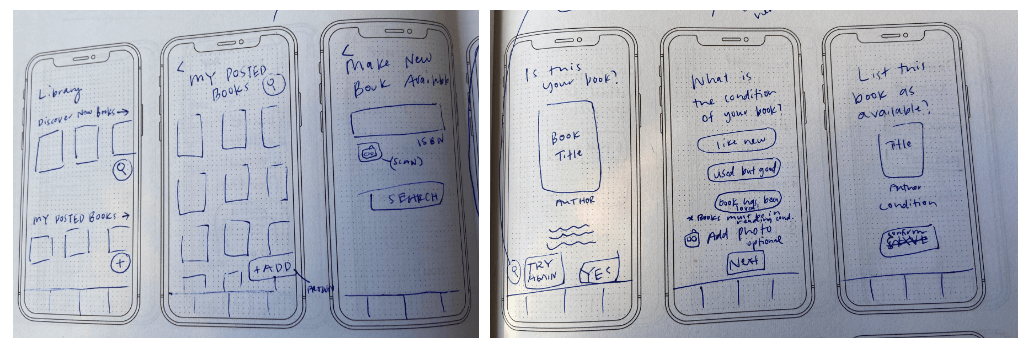 Library
Discover New Books →
MY POSTED BOOKS →
+
<
MY POSTED
BOOKS
+ADD
<
Make New
Book Available
ISBN
(SCAN)
SEARCH
Is this
your book?
Book
Title
AUTHOR
TRY
AGAIN
YES
What is
the condition
of your book?
like new
used but good
book has been
loved
* Books must be in
reading cond.
Add photo
optional
Next
List this
book as
available?
Title
Author
Condition
confirm